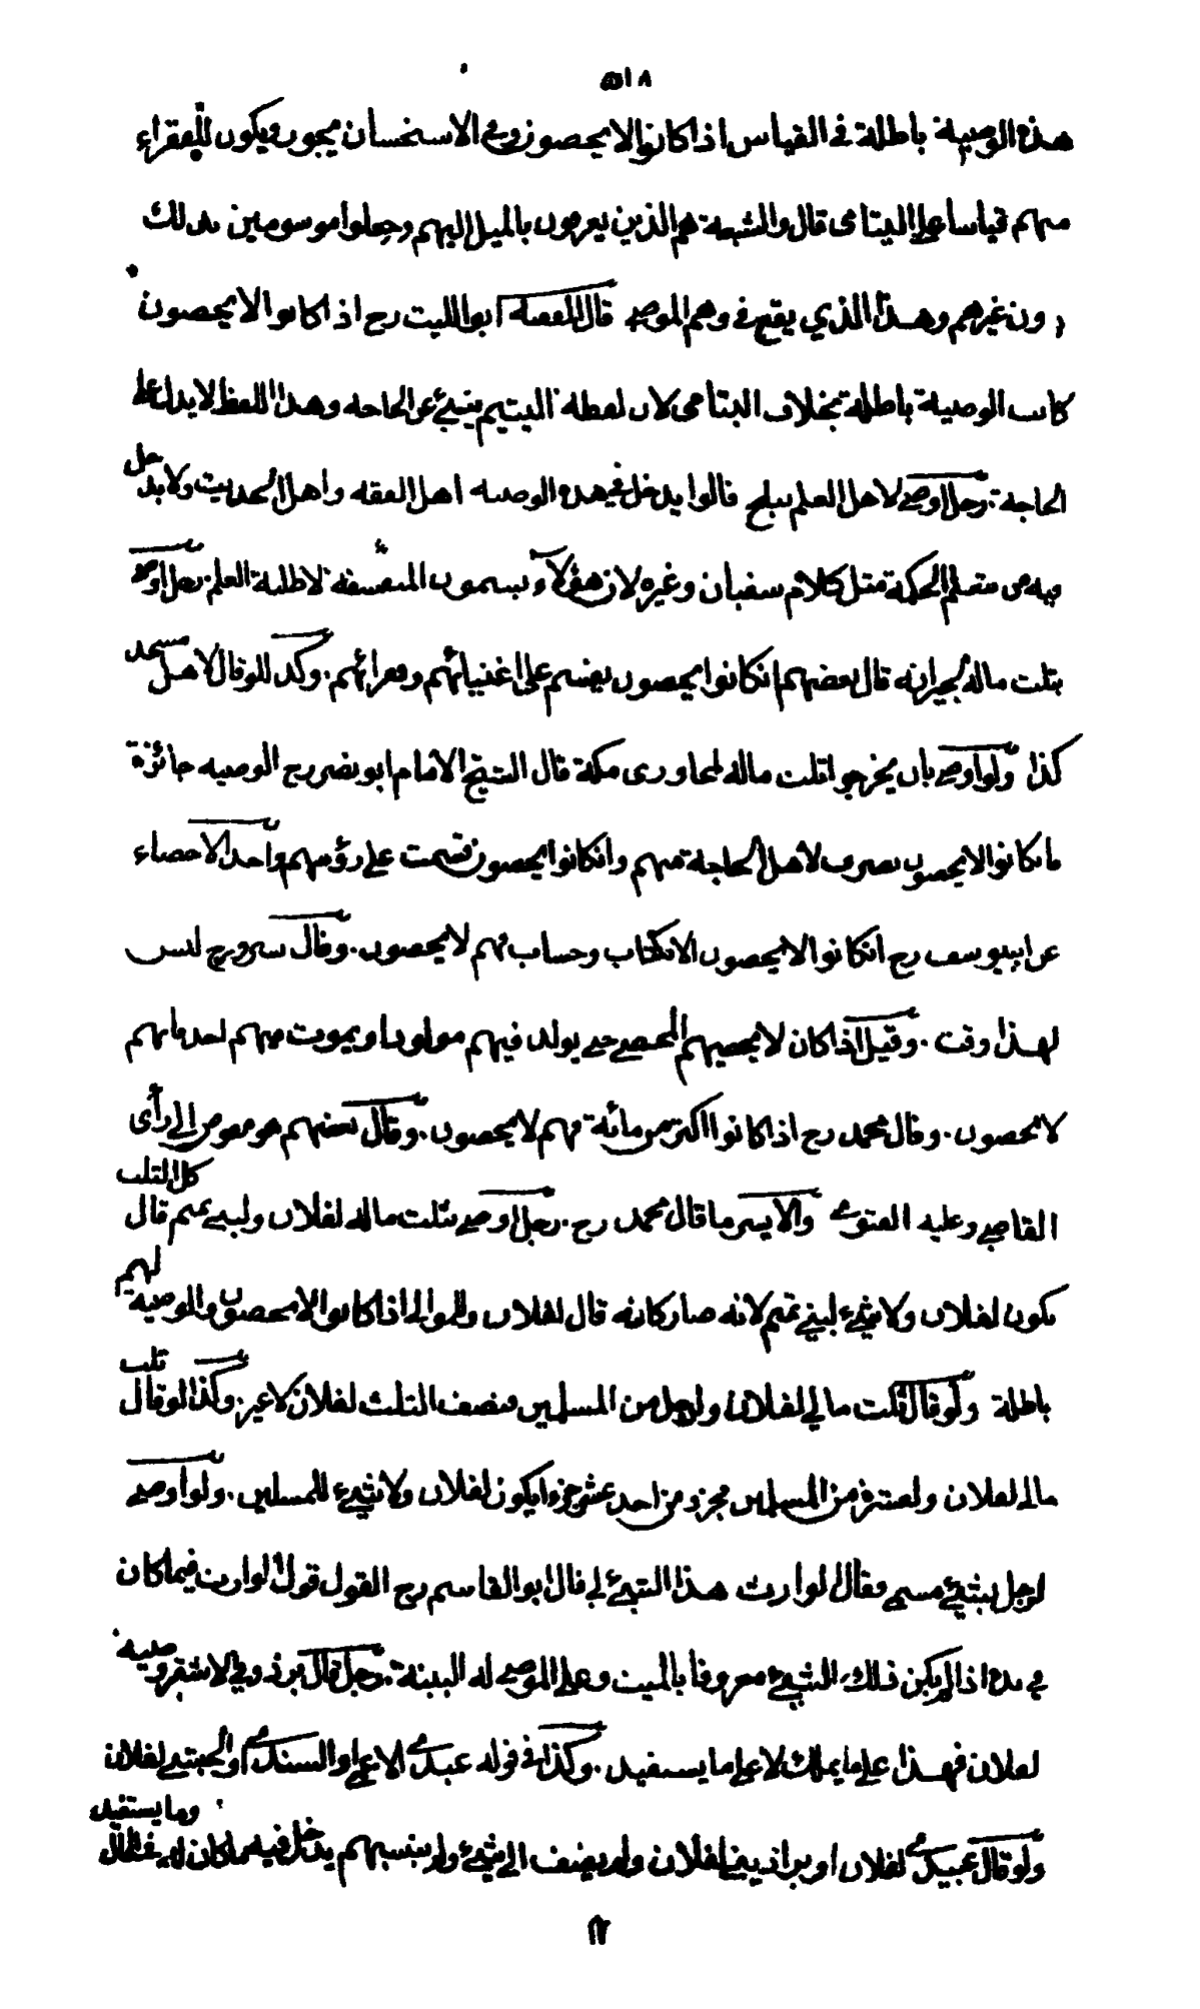 ٥١٨
هذه الوصية باطلة في القياس اذا كانوا لا يحصون وفي الاستحسان يجوز ويكون للفقراء
منهم قياسا على اليتامى قال والشيعة هم الذين يعرفون بالميل اليهم وجعلوا موسومين بذلك
دون غيرهم وهذا الذي يقع في وهم الموصي قال الفقيه ابو الليث رح اذا كانوا لا يحصون
كانت الوصية باطلة بخلاف اليتامى لان لفظة اليتيم ينبئ عن الحاجة وهذا اللفظ لا يدل على
الحاجة . رجل اوصى لاهل العلم ببلخ قالوا يدخل في هذه الوصية اهل الفقه واهل الحديث ولا يدخل
فيه من متعلم الحكمة مثل كلام سفيان وغيره لان هؤلاء يسمون المتفلسفة لا طلبة العلم . رجل اوصى
بثلث ماله لجيرانه قال بعضهم ان كانوا يحصون يقسم على اغنيائهم وفقرائهم . وكذا لو قال لاهل مسجد
كذا ولو اوصى بان يخرجوا ثلث ماله لمجاوري مكة قال الشيخ الامام ابو نصر رح الوصية جائزة
ما كانوا لا يحصون يصرف لاهل الحاجة منهم وان كانوا يحصون قسمت على رؤسهم واحد الاحصاء
عن ابي يوسف رح ان كانوا لا يحصون الا بكتاب وحساب فهم لا يحصون . وقال بشر رح ليس
لهذا وقت . وقيل اذا كان لا يحصيهم المحصي حتى يولد فيهم مولود او يموت منهم احد فانهم
لا يحصون . وقال محمد رح اذا كانوا اكثر من مائة فهم لا يحصون . وقال بعضهم هو مفوض الى رأى
القاضي وعليه الفتوى والايسر ما قال محمد رح . رجل اوصى بثلث ماله لفلان ولبني تميم قال كل الثلث
يكون لفلان ولا شيء لبني تميم لانه صار كانه قال لفلان وللموالي اذا كانوا لا يحصون والوصية لهم
باطلة ولو قال ثلث مالي لفلان ولرجل من المسلمين فنصف الثلث لفلان لا غير . وكذا لو قال ثلث
مالي لفلان ولعشرة من المسلمين فجزء من احد عشر جزءا يكون لفلان ولا شيء للمسلمين . ولو اوصى
لرجل بشيء مسمى فقال الوارث هذا الشيء لي قال ابو القاسم رح القول قول الوارث فيما كان
في يده اذا لم يكن ذلك الشيء معروفا بالميت وعلى الموصى له البينة . رجل قال برذوني الاشقر وصية
لفلان فهذا على ما يملك لا على ما يستفيد . وكذا في قوله عبدي الاعمى او السندي او الحبشي لفلان
ولو قال عبيدي لفلان او براذيني لفلان ولم يضف الى شيء ولم ينسبهم يدخل فيه ما كان له في الحال وما يستفيد